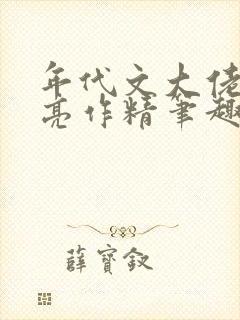 年代文大佬
亮作精笔趣
薛寶釵